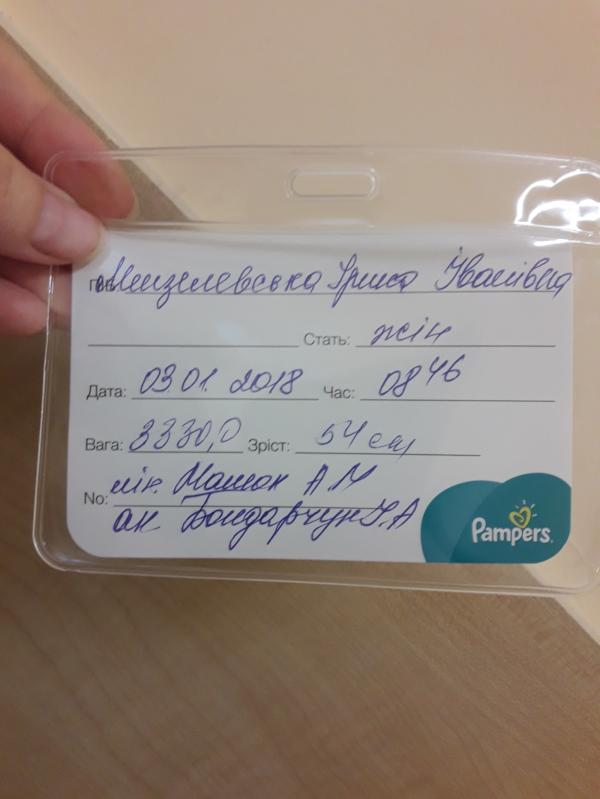 ПІБ Мизелевська Ірина Іванівна
Стать: жін
Дата: 03.01.2018 Час: 08 46
Вага: 3330,0 Зріст: 54 см
No: лік. А.М
ак Бондарчук І.А
Pampers